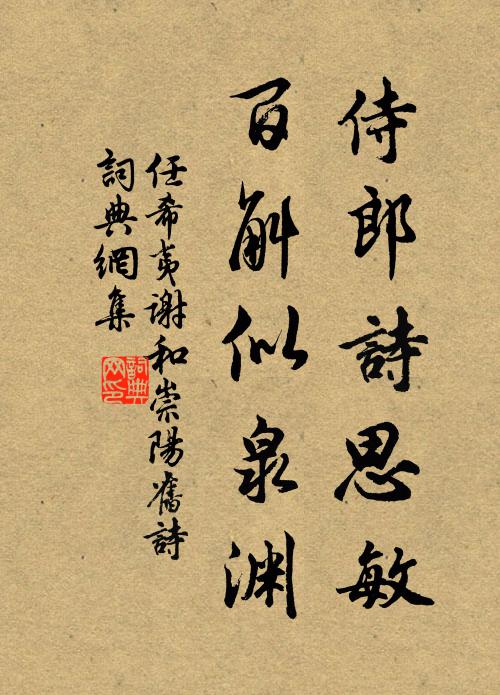 侍郎詩思敏
百斛似泉淵
任希夷謝和崇陽舊詩
詞典網集
詞典网印